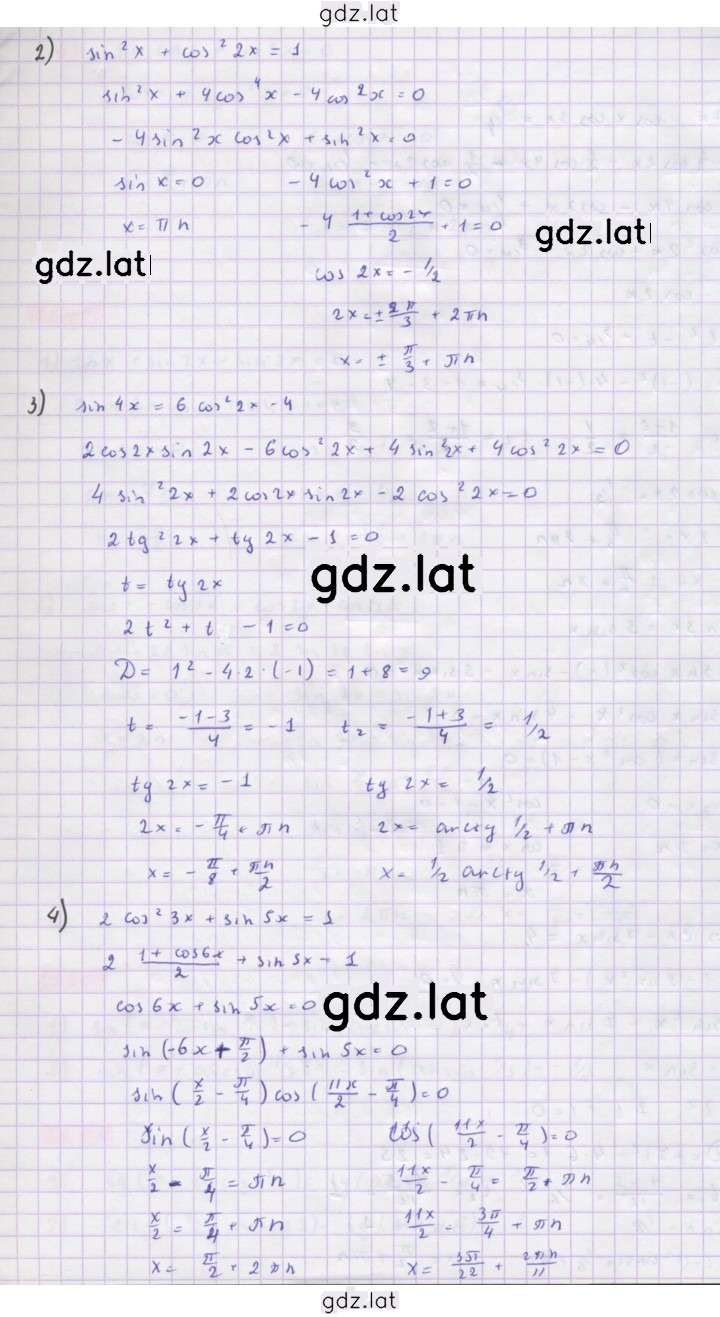 gdz.lat
2) sin²x + cos²2x = 1
sin²x + 4cos⁴x - 4cos²x = 0
- 4sin²x cos²x + sin²x = 0
sin x = 0 - 4cos²x + 1 = 0
x = πn - 4 (1+cos2x)/2 + 1 = 0
gdz.lat gdz.lat
cos 2x = - 1/2
2x = ± 2π/3 + 2πn
x = ± π/3 + πn
3) sin 4x = 6 cos²2x - 4
2cos2x sin2x - 6cos²2x + 4sin²2x + 4cos²2x = 0
4 sin²2x + 2cos2x sin2x - 2cos²2x = 0
2tg²2x + tg 2x - 1 = 0
gdz.lat
t = tg 2x
2t² + t - 1 = 0
D = 1² - 4·2·(-1) = 1 + 8 = 9
t = (-1-3)/4 = -1 t₂ = (-1+3)/4 = 1/2
tg 2x = -1 tg 2x = 1/2
2x = - π/4 + πn 2x = arctg 1/2 + πn
x = - π/8 + πn/2 x = 1/2 arctg 1/2 + πn/2
4) 2cos²3x + sin 5x = 1
2 (1+cos6x)/2 + sin 5x = 1
cos 6x + sin 5x = 0
gdz.lat
sin(-6x + π/2) + sin 5x = 0
sin(x/2 - π/4) cos(11x/2 - π/4) = 0
sin(x/2 - π/4) = 0 cos(11x/2 - π/4) = 0
x/2 - π/4 = πn 11x/2 - π/4 = π/2 + πn
x/2 = π/4 + πn 11x/2 = 3π/4 + πn
x = π/2 + 2πn x = 3π/22 + 2πn/11
gdz.lat